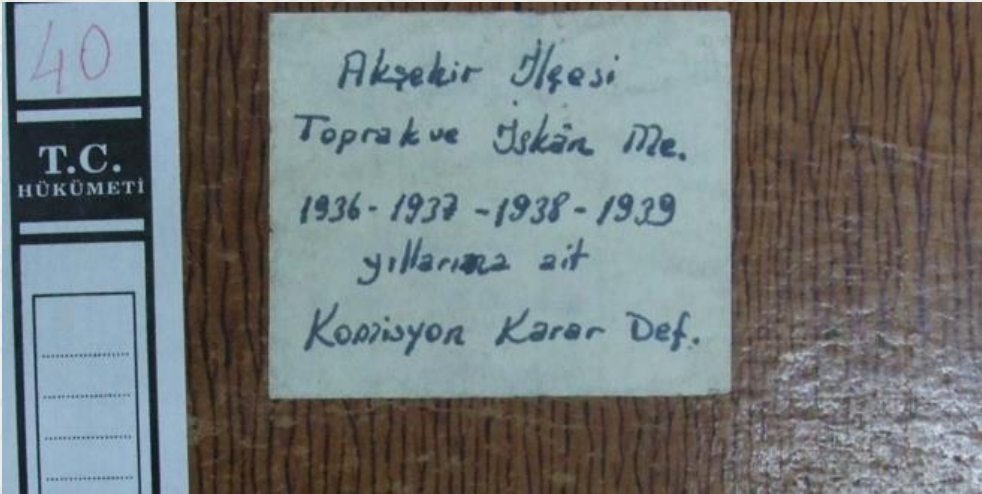 40
T.C.
HÜKÜMETİ
Akşehir İlçesi
Toprak ve İskân Me.
1936-1937-1938-1939
yıllarına ait
Komisyon Karar Def.